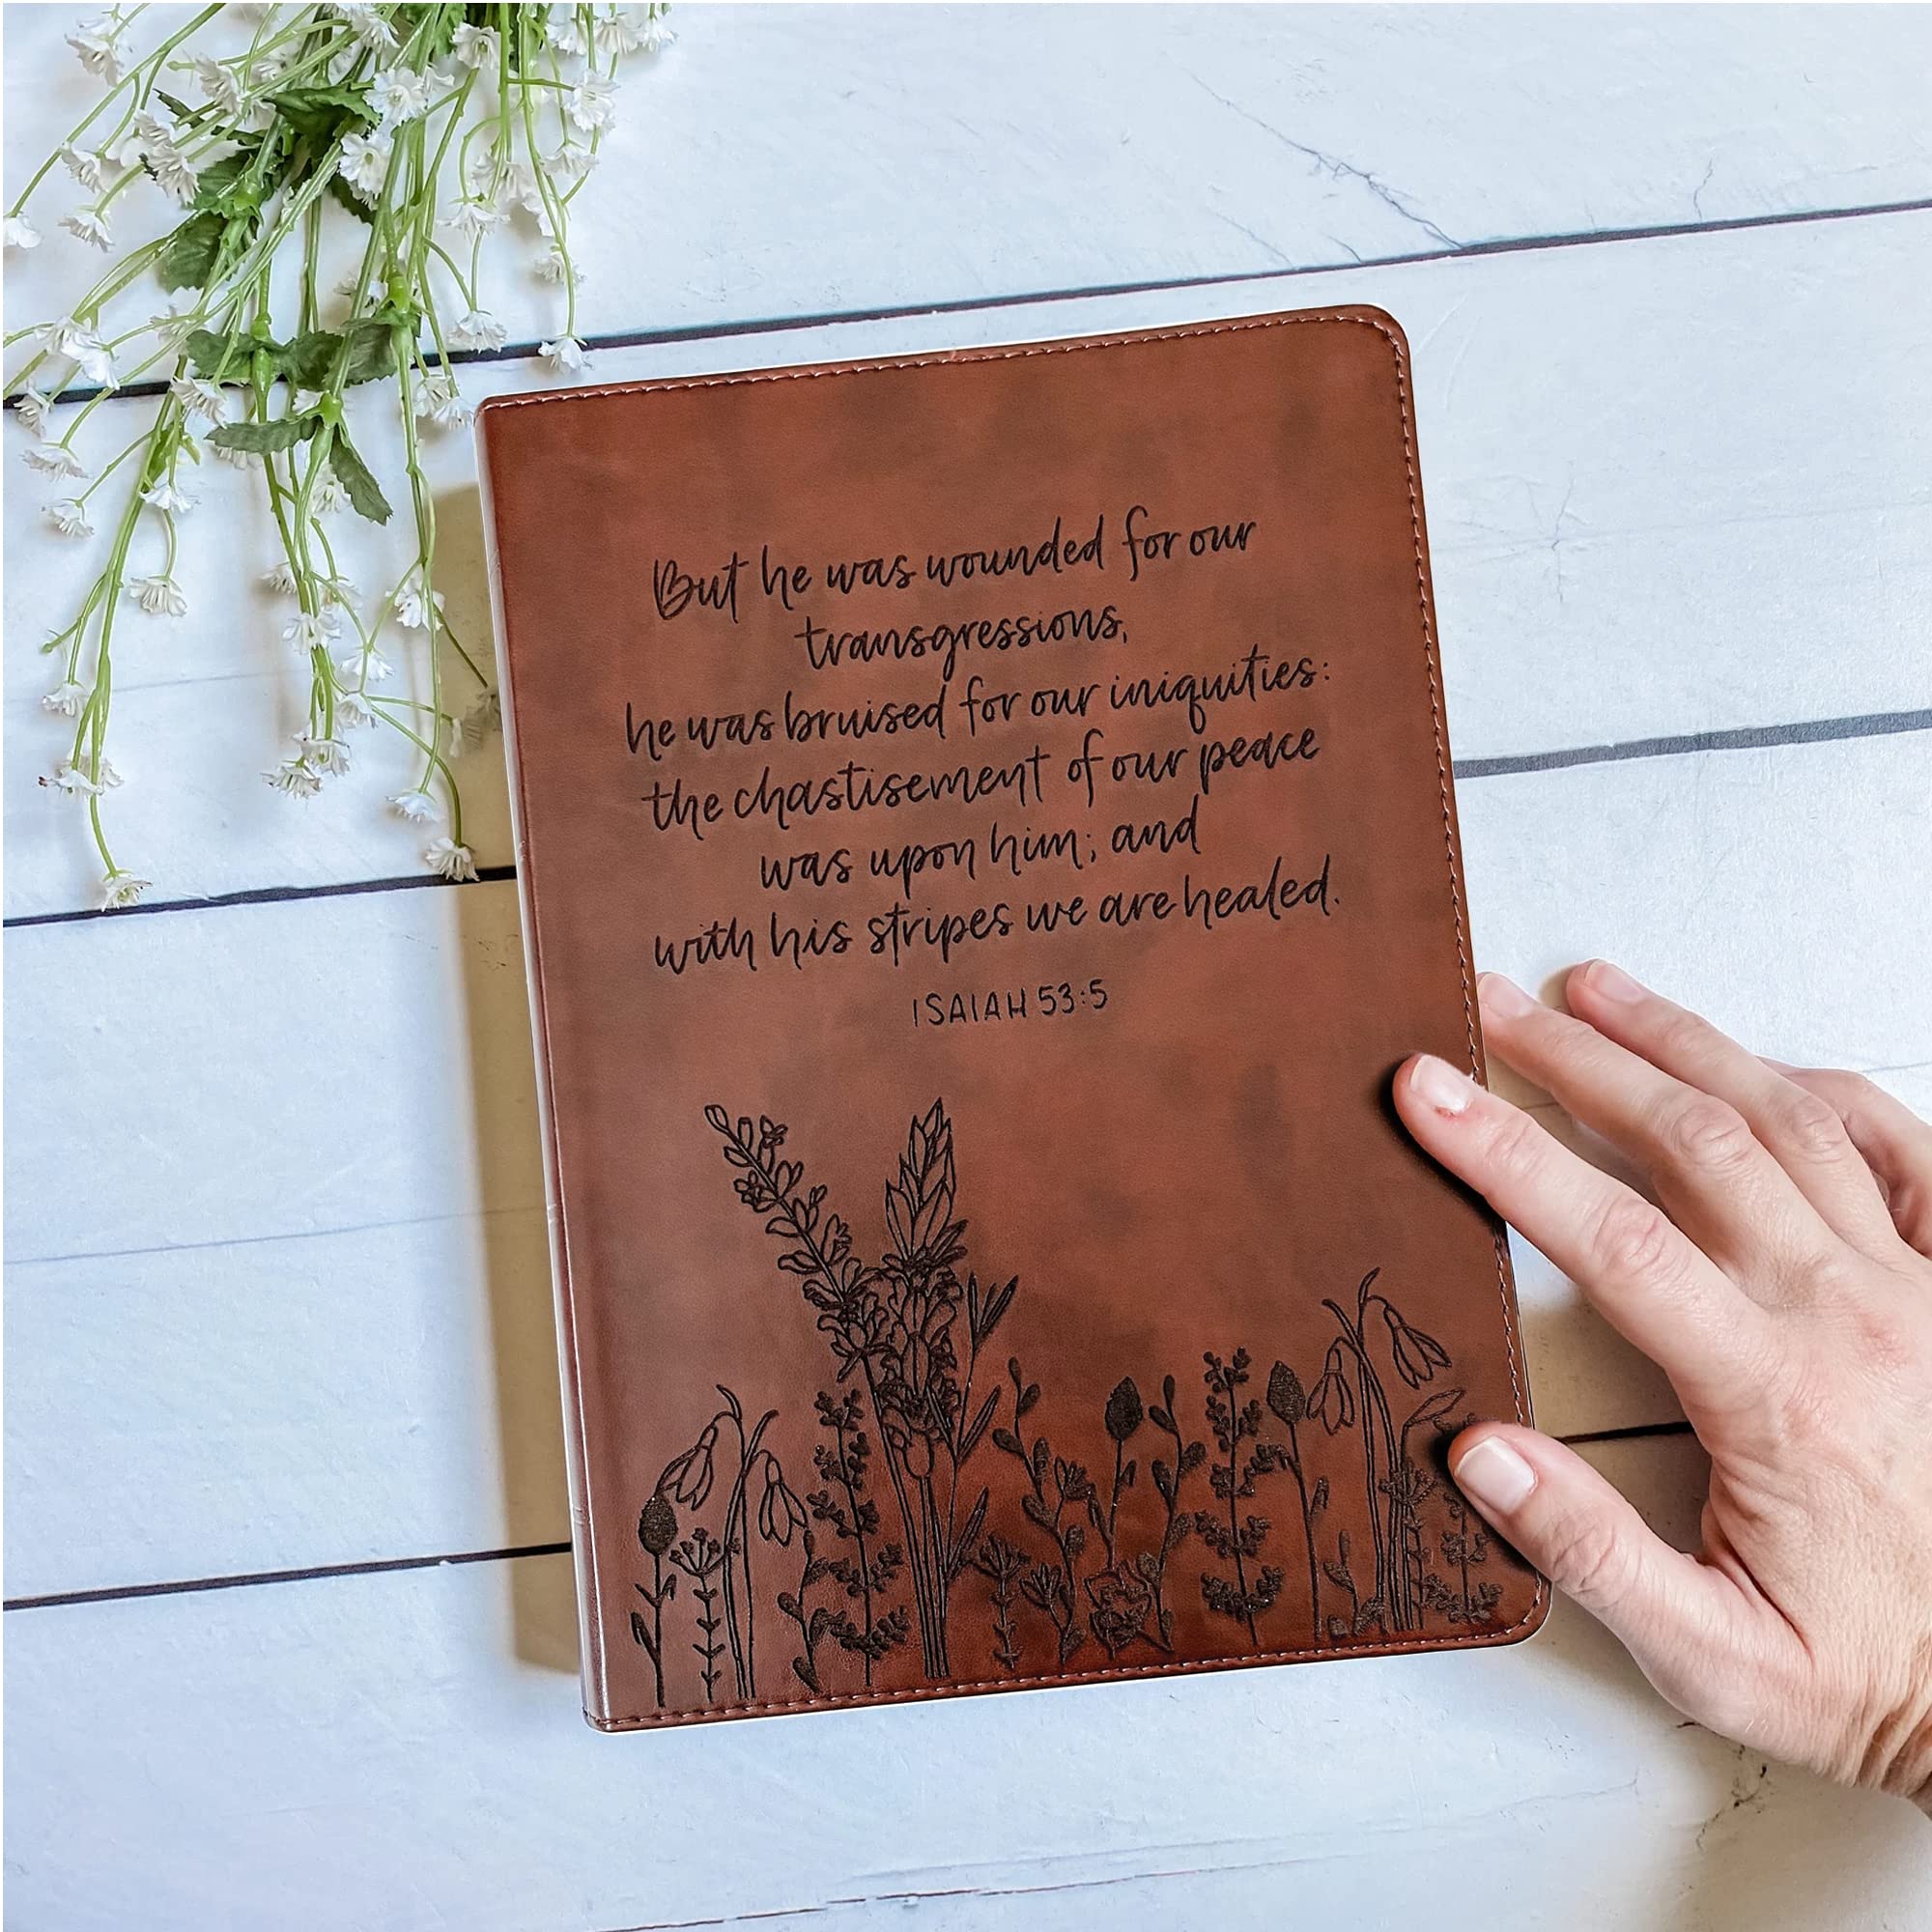 But he was wounded for our
transgressions,
he was bruised for our iniquities:
the chastisement of our peace
was upon him; and
with his stripes we are healed.
ISAIAH 53:5